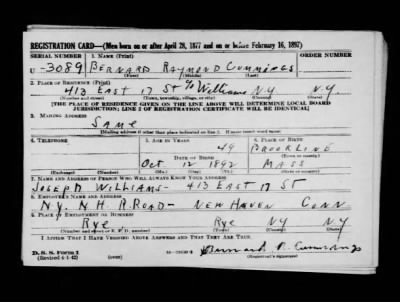 REGISTRATION CARD—(Men born on or after April 28, 1877 and on or before February 16, 1897)
SERIAL NUMBER 1. NAME (Print) ORDER NUMBER
U-3089 BERNARD RAYMOND CUMMINGS
(First) (Middle) (Last)
2. PLACE OF RESIDENCE (Print)
413 EAST 17 ST % Williams NY N.Y.
(Number and street) (Town, township, village, or city) (County) (State)
[THE PLACE OF RESIDENCE GIVEN ON THE LINE ABOVE WILL DETERMINE LOCAL BOARD
JURISDICTION; LINE 2 OF REGISTRATION CERTIFICATE WILL BE IDENTICAL]
3. MAILING ADDRESS
SAME
[Mailing address if other than place indicated on line 2. If same insert word same]
4. TELEPHONE 5. AGE IN YEARS 6. PLACE OF BIRTH
49 BROOKLINE
DATE OF BIRTH (Town or county)
OCT 12 1892 MASS
(Exchange) (Number) (Mo.) (Day) (Yr.) (State or country)
7. NAME AND ADDRESS OF PERSON WHO WILL ALWAYS KNOW YOUR ADDRESS
JOSEPH WILLIAMS - 413 EAST 17 ST
8. EMPLOYER'S NAME AND ADDRESS
N.Y. N.H. R.ROAD - NEW HAVEN CONN
9. PLACE OF EMPLOYMENT OR BUSINESS
Rye Rye NY NY
(Number and street or R. F. D. number) (Town) (County) (State)
I AFFIRM THAT I HAVE VERIFIED ABOVE ANSWERS AND THAT THEY ARE TRUE.
D. S. S. Form 1
(Revised 4-1-42) (over)
Bernard R. Cummings
(Registrant's signature)